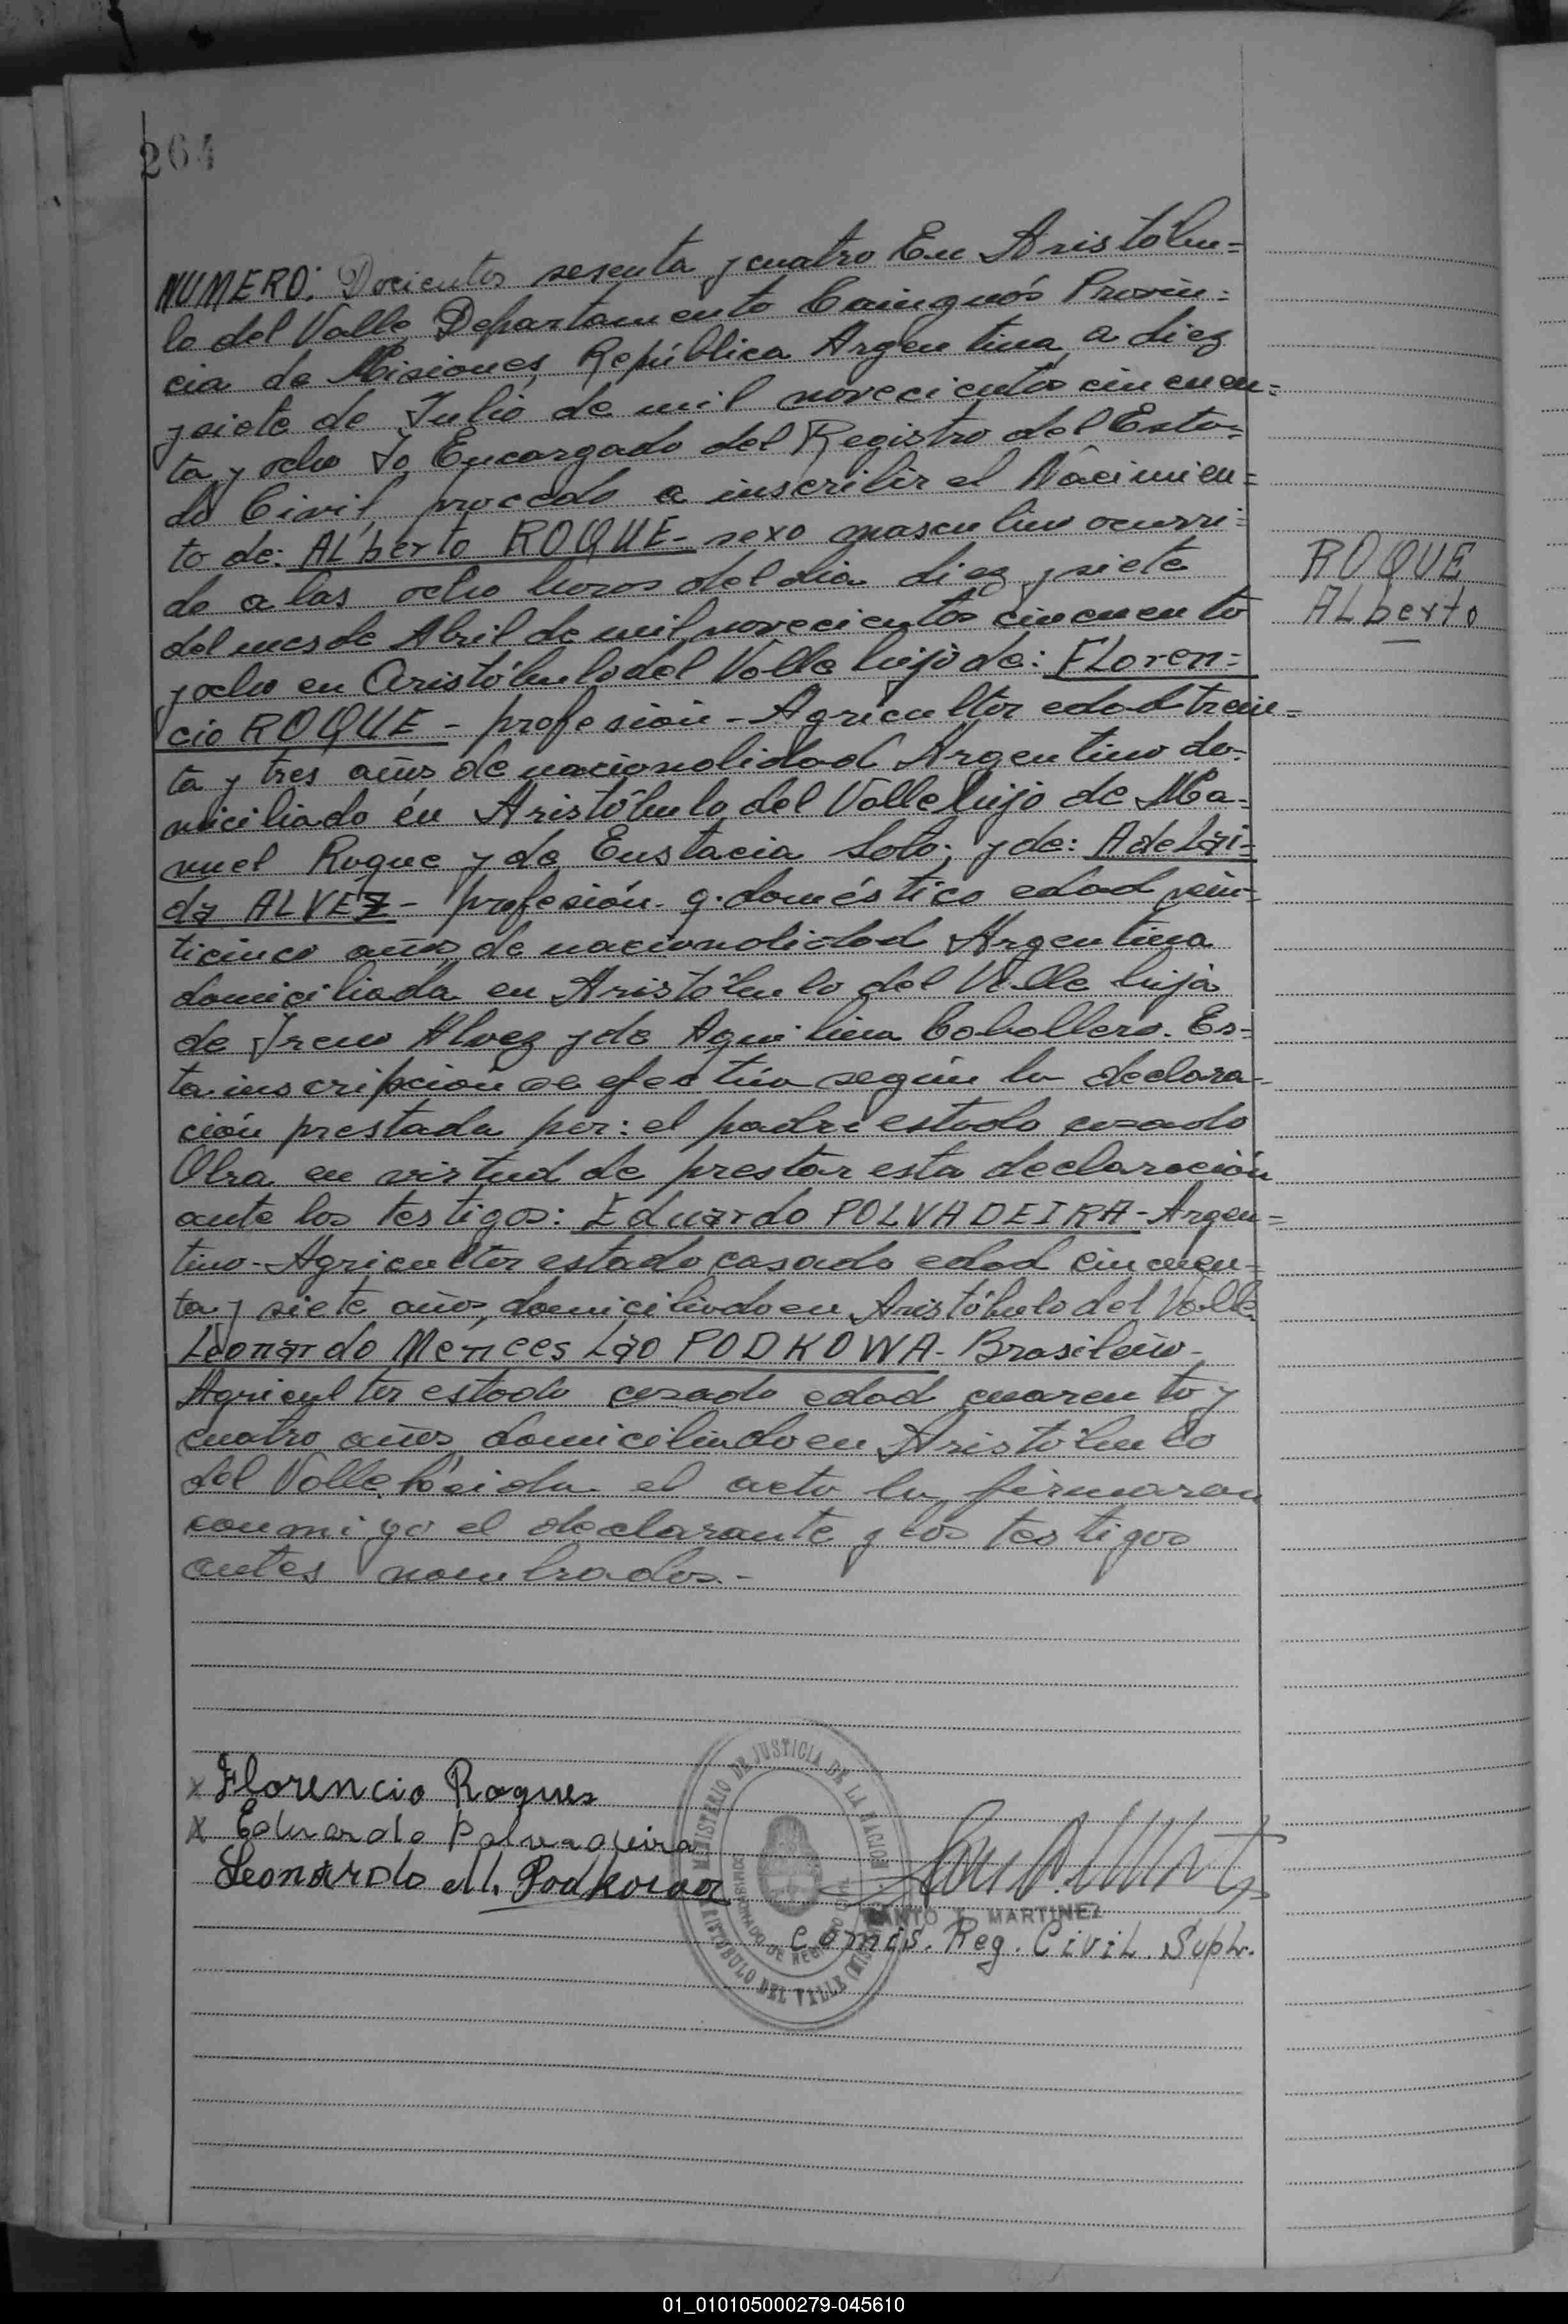 264
NUMERO: Docientos sesenta y cuatro En Aristólu=
lo del Valle, Departamento Cainguás Provin=
cia de Misiones, República Argentina, a diez
y siete de Julio de mil novecientos cincuen=
ta y ocho Yo, Encargado del Registro del Esta=
do Civil, procedo a inscribir el Nacimien=
to de: ALberto ROQUE- sexo masculino ocurri=
do a las ocho horas del día diez y siete
del mes de Abril de mil novecientos cincuenta
y ocho en Aristóbulo del Valle hijo de: FLoren=
cio ROQUE - profesión - Agricultor edad trein=
ta y tres años, de nacionalidad Argentino do=
miciliado en Aristóbulo del Valle hijo de Ma=
nuel Roque y de Eustacia Soto; y de: AdeLai=
da ALVEZ - profesión q. doméstico edad vein=
ticinco años, de nacionalidad Argentina
domiciliada en Aristóbulo del Valle hija
de Ireno Alvez y de Aquilina Caballero. Es=
ta inscripción se efectúa según la declara-
ción prestada por: el padre estado casado
Obra en virtud de prestar esta declaración
ante los testigos: Eduardo POLVADEIRA - Argen=
tino - Agricultor estado casado edad cincuen=
ta y siete años, domiciliado en Aristóbulo del Valle
Leonardo Mences Lao PODKOWA - Brasileño -
Agricultor estado casado edad cuarenta y
cuatro años, domiciliado en Aristóbulo
del Valle. Leída el acta la firmaron
conmigo el declarante y los testigos
antes nombrados.-
ROQUE
ALberto
x Florencio Roques
x Eduardo Polvadeira
Leonardo M. Podkowa
MINISTERIO DE JUSTICIA DE LA NACION
ARISTOBULO DEL VALLE
MARTINEZ
Comis. Reg. CiviL. SupL.
01_010105000279-045610